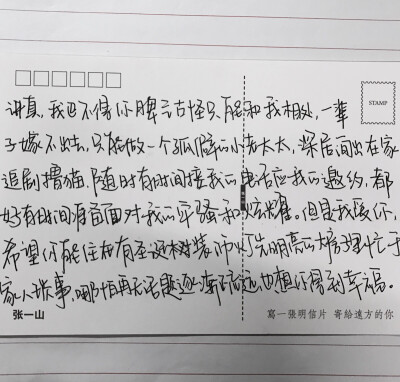 STAMP
讲真,我巴不得你脾古怪只能和我相处,一辈
子嫁不出去,只能做一个孤僻的小老太太,深居间出在家
追剧撸猫,随时有时间接我的电话应我的邀约,都
好有时间有面对我的牢骚和炫耀。但是我爱你,
希望你能住在有圣诞树装饰灯光明亮的大房里忙于
家人琐事,哪怕再无话题逐渐疏远,也想你得到幸福。
张一山
寫一張明信片 寄給遠方的你